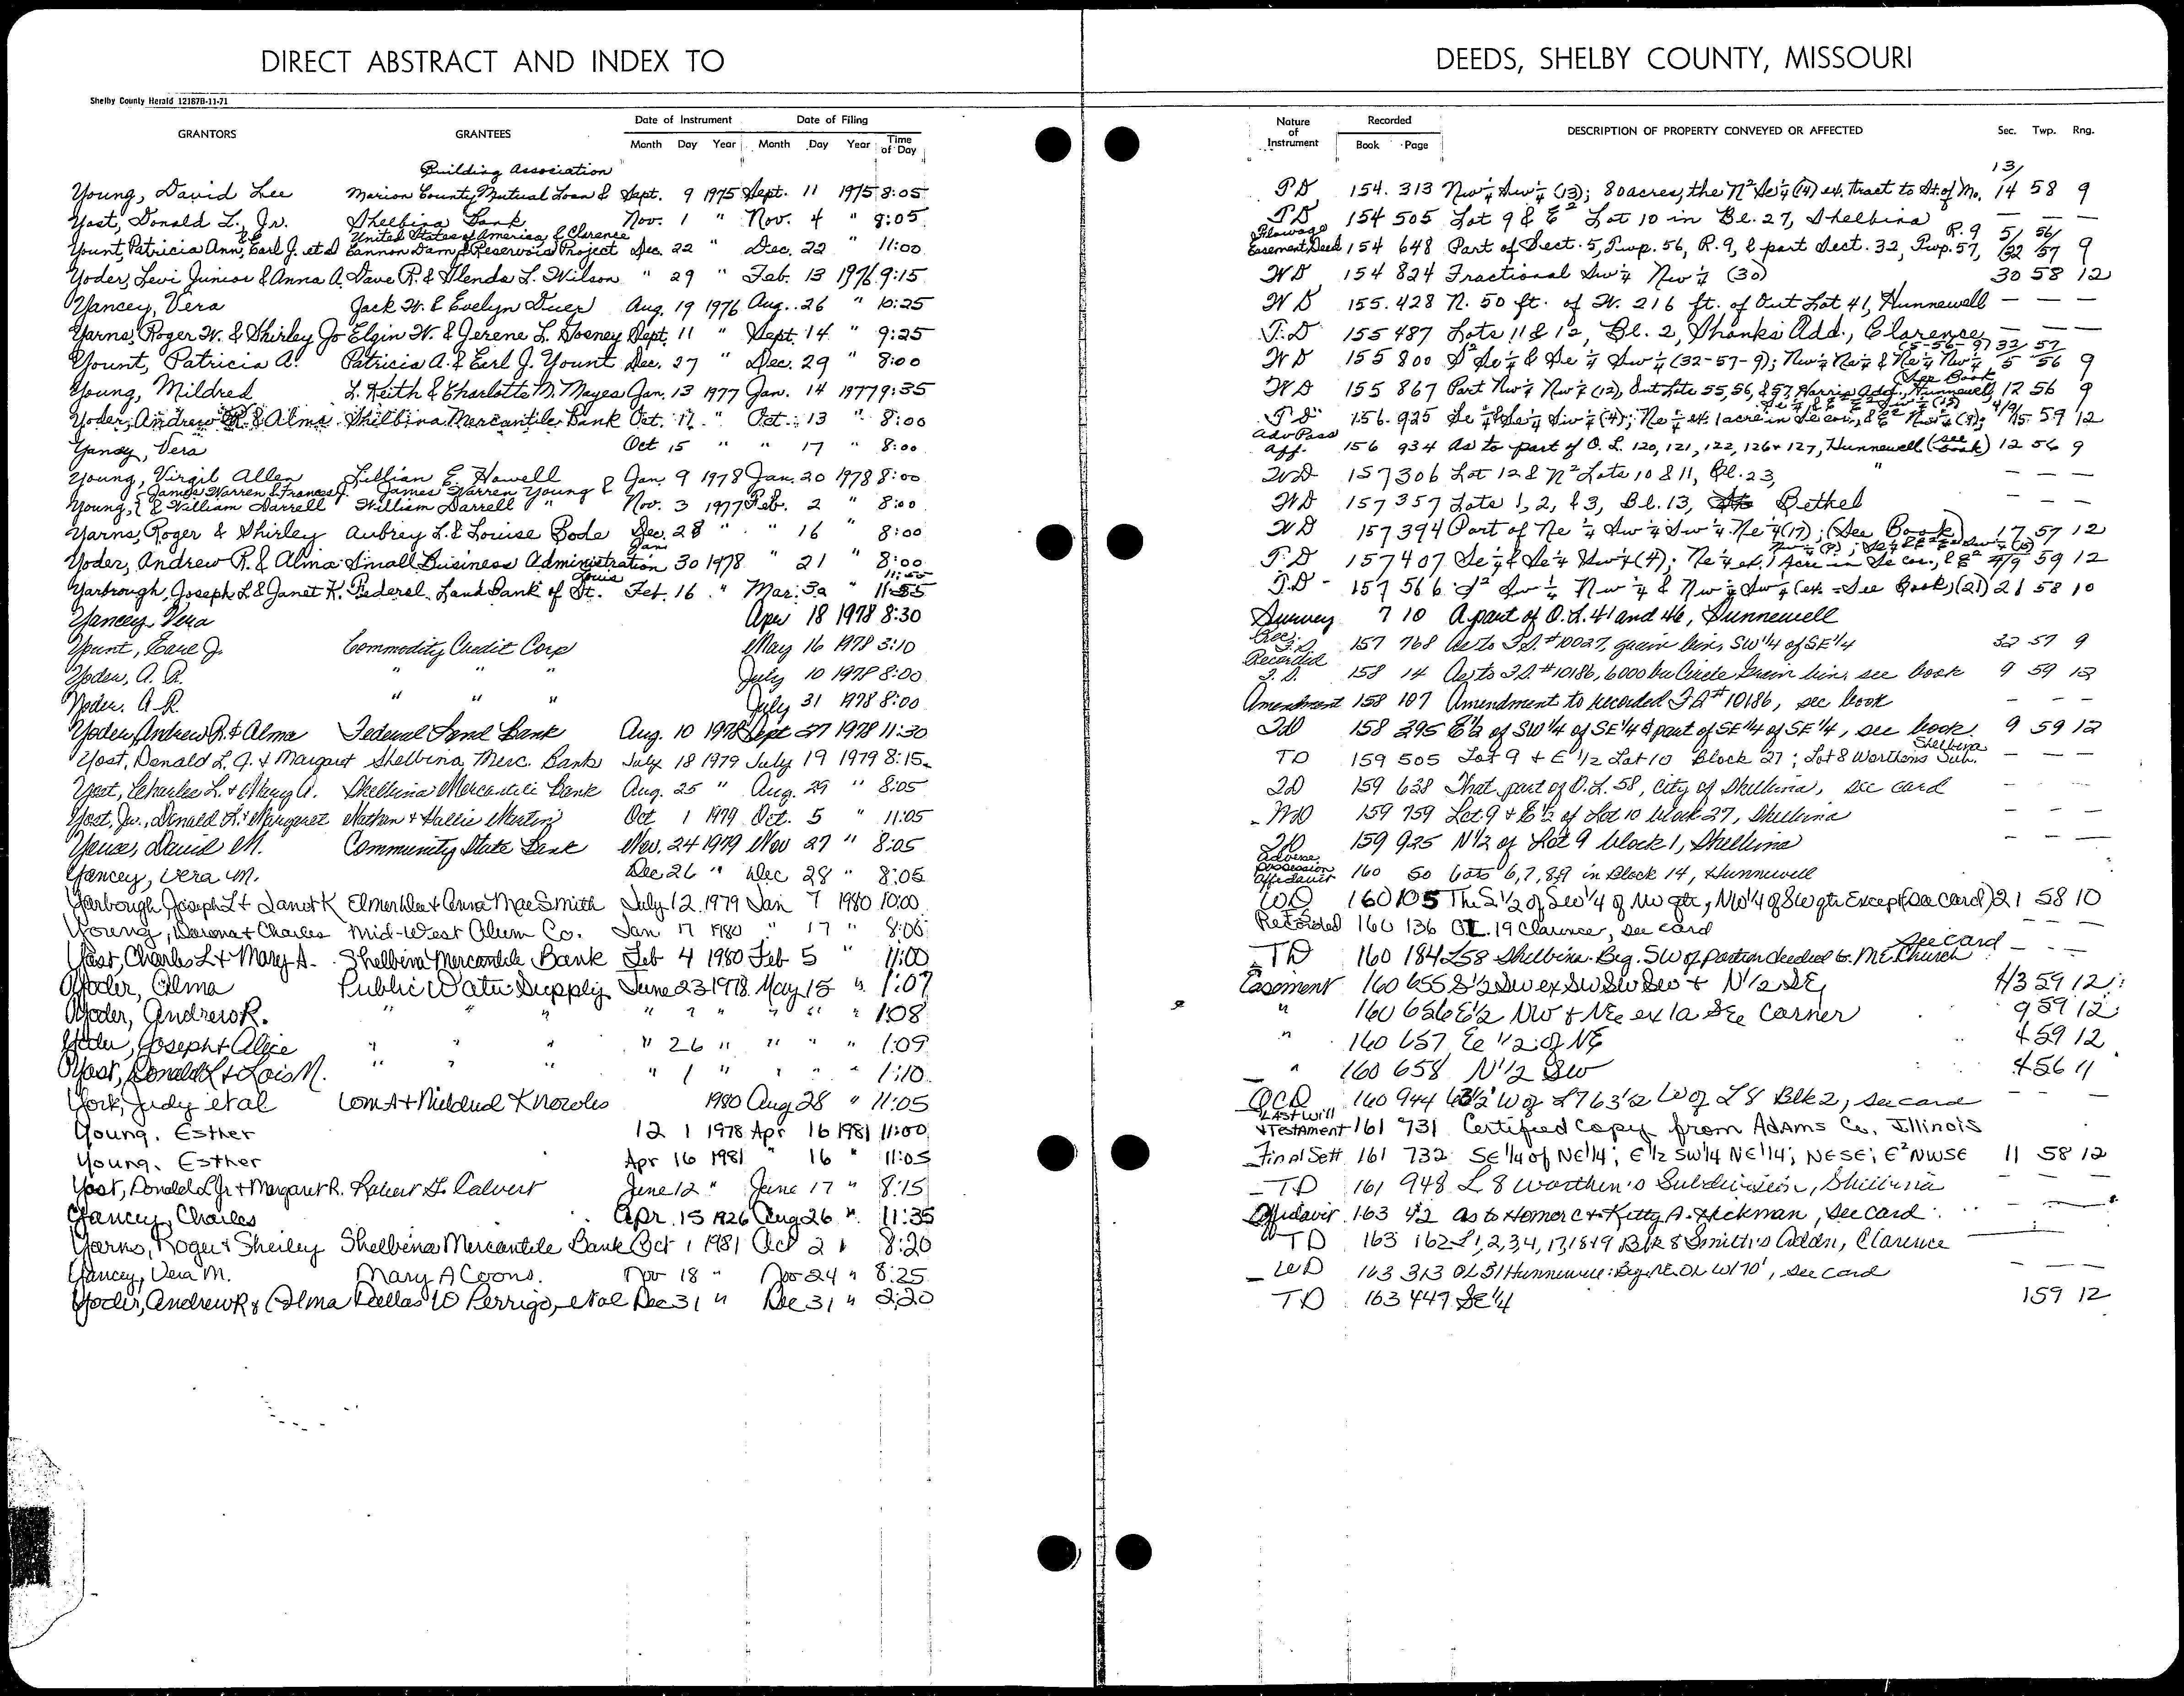 DIRECT ABSTRACT AND INDEX TO
DEEDS, SHELBY COUNTY, MISSOURI
Shelby County Herald 12187B-11-71
GRANTORS GRANTEES Date of Instrument Month Day Year Date of Filing Month Day Year Time of Day
Nature of Instrument Recorded Book Page DESCRIPTION OF PROPERTY CONVEYED OR AFFECTED Sec. Twp. Rng.
Building Association
Young, David Lee Marion County Mutual Loan & Sept. 9 1975 Sept. 11 1975 8:05
Yost, Donald L., Jr. Shelbina Bank Nov. 1 " Nov. 4 " 8:05
United States of America & Clarence
Yount, Patricia Ann, Earl J. et al Cannon Dam & Reservoir Project Dec. 22 " Dec. 22 " 11:00
Yoder, Levi Junior & Anna A. Dave R. & Glenda L. Wilson " 29 " Feb. 13 1976 9:15
Yancey, Vera Jack W. & Evelyn Duer Aug. 19 1976 Aug. 26 " 10:25
Yarns, Roger W. & Shirley Jo Elgin W. & Jerene L. Gosney Sept. 11 " Sept. 14 " 9:25
Yount, Patricia A. Patricia A. & Earl J. Yount Dec. 27 " Dec. 29 " 8:00
Young, Mildred L. Keith & Charlotte M. Mayes Jan. 13 1977 Jan. 14 1977 9:35
Yoder, Andrew R. & Alma Shelbina Mercantile Bank Oct. 11 " Oct. 13 " 8:00
Yancy, Vera Oct 15 " " 17 " 8:00
Young, Virgil Allen Lillian E. Howell Jan. 9 1978 Jan. 20 1978 8:00
James Warren & Frances J. James Warren Young &
Young, & William Darrell William Darrell " Nov. 3 1977 Feb. 2 " 8:00
Yarns, Roger & Shirley Aubrey L. & Louise Bode Dec. 28 " " 16 " 8:00
Jan
Yoder, Andrew R. & Alma Small Business Administration 30 1978 " 21 " 8:00
Louis 11:55
Yarbrough, Joseph L & Janet K. Federal Land Bank of St. Feb. 16 " Mar. 30 " 11:55
Yancey Vera Apr 18 1978 8:30
Yount, Earl J. Commodity Credit Corp May 16 1978 3:10
Yoder, A. R. " " " July 10 1978 8:00
Yoder, A R. " " " July 31 1978 8:00
Yoder, Andrew R. & Alma Federal Land Bank Aug. 10 1978 Sept 27 1978 11:30
Yost, Donald L. J. & Margaret Shelbina Merc. Bank July 18 1979 July 19 1979 8:15
Yost, Charles L. + Mary A. Shelbina Mercantile Bank Aug. 25 " Aug. 29 " 8:05
Yost, Jr., Donald L. + Margaret Nathan + Hallie Martin Oct 1 1979 Oct. 5 " 11:05
David M. Community State Bank Nov. 24 1979 Nov 27 " 8:05
Yancey, Vera M. Dec 26 " Dec 28 " 8:05
Yarbough Joseph L + Janet K Elmer Lee + Anna Mae Smith July 12 1979 Jan 7 1980 10:00
Young, + Charles Mid-West Alum Co. Jan 17 1980 " 17 " 8:00
Yost, Charles L + Mary A. Shelbina Mercantile Bank Feb 4 1980 Feb 5 " 11:00
Yoder, Alma Public Water Supply June 23 1978 May 15 " 1:07
Yoder, Andrew R. " " " " " " " " " 1:08
Yoder, Joseph + Alice " " " " 26 " " " " 1:09
Yost, Donald L + Lois M. " " " " 1 " " " " 1:10
York, Judy et al Loma + Mildred Knowles 1980 Aug 28 " 11:05
Young, Esther 12 1 1978 Apr 16 1981 11:00
Young, Esther Apr 16 1981 " 16 " 11:05
Yost, Donald L Jr + Margaret R. Robert G. Calvert June 12 " June 17 " 8:15
Yancey, Charles Apr. 15 1926 Aug 26 " 11:35
Yarns, Roger + Shirley Shelbina Mercantile Bank Oct 1 1981 Oct 2 " 8:20
Yancey, Vera M. Mary A Coons. Nov 18 " Nov 24 " 8:25
Yoder, Andrew R & Alma Dallas W Perrigo, et al Dec 31 " Dec 31 " 2:20
13/
TD 154 313 Nw¼ Sw¼ (13); 80 acres, the N² Se¼ (14) ex. tract to St. of Mo. 14 58 9
TD 154 505 Lot 9 & E² Lot 10 in Bl. 27, Shelbina — — —
Flowage R.9 5/ 56/
Easement Deed 154 648 Part of Sect. 5, Twp. 56, R. 9, & part Sect. 32, Twp. 57, 32 57 9
WD 154 824 Fractional Sw¼ Nw¼ (30) 30 58 12
WD 155 428 N. 50 ft. of W. 216 ft. of Out Lot 41, Hunnewell — — —
T.D 155 487 Lots 11 & 12, Bl. 2, Shanks Add., Clarence — — —
(5-56-9) 32/ 57/
WD 155 800 S² Se¼ & Se¼ Sw¼ (32-57-9); Nw¼ Ne¼ & Ne¼ Nw¼ 5 56 9
(See Book)
WD 155 867 Part Nw¼ Nw¼ (12), Out Lots 55, 56, & 57, Harris Add., Hunnewell, 12 56 9
Se¼ & E² E² Sw¼ (15) 4/9/
T.D 156 925 Se¼ & Se¼ Sw¼ (4); Ne¼ ex. 1 acre in Se cor., & E² Nw¼ (9); 15 59 12
Adv Poss
Aff. 156 934 As to part of O. L. 120, 121, 122, 126 + 127, Hunnewell (see book) 12 56 9
WD 157 306 Lot 12 & N² Lots 10 & 11, Bl. 23, " — — —
WD 157 357 Lots 1, 2, & 3, Bl. 13, Bethel — — —
WD 157 394 Part of Ne¼ Sw¼ Sw¼ Ne¼ (17); (See Book) 17 57 12
Nw¼ (9); Se¼ & E² E² Sw¼ (15)
T.D 157 407 Se¼ & Se¼ Sw¼ (4); Ne¼ ex. 1 Acre in Se cor., & E² 4/9 59 12
T.D 157 566 S² Sw¼ Nw¼ & Nw¼ Sw¼ (ex. - See Book) (21) 21 58 10
Survey 7 10 A part of O. L. 41 and 46, Hunnewell
Rec.
F.S. 157 768 As to F.S. #10027, grain bin, SW¼ of SE¼ 32 57 9
Recorded
F.S. 158 14 As to F.S. #10186, 6000 bu Circle Grain bin, see book 9 59 12
Amendment 158 107 Amendment to recorded F.S. #10186, see book — — —
TD 158 395 E½ of SW¼ of SE¼ & part of SE¼ of SE¼, see book. 9 59 12
Shelbina
TD 159 505 Lot 9 + E½ Lot 10 Block 27; Lot 8 Worthens Sub. — — —
TD 159 628 That part of O.L. 58, city of Shelbina, see card — — —
WD 159 759 Lot 9 + E½ of Lot 10 block 27, Shelbina — — —
TD 159 925 N½ of Lot 9 block 1, Shelbina — — —
Adverse
Possession
Affidavit 160 50 Lots 6,7,8,9 in Block 14, Hunnewell
WD 160 105 The S½ of SW¼ of NW qtr, NW¼ of SW qtr Except (See card) 21 58 10
Recorded 160 136 OL 19 Clarence, see card — — —
see card
TD 160 184 L58 Shelbina. Beg. SW of portion deeded to M.E. Church — — —
Easement 160 655 S½ SW ex SW SW SW + N½ SE, 4/3 59 12
" 160 656 E½ NW + NE ex 1a SE corner 9 59 12
" 160 657 E½ of NE 4 59 12
" 160 658 N½ SW 4 56 11
QCD 160 944 63½' W of L7 63½ W of L8 Blk 2, see card — — —
LAST Will
+ Testament 161 731 Certified Copy from Adams Co. Illinois
Final Sett 161 732 SE¼ of NE¼; E½ SW¼ NE¼; NESE; E²NWSE 11 58 12
TD 161 948 L 8 Worthen's Subdivision, Shelbina — — —
Affidavit 163 42 as to Homer C + Kitty A. Hickman, see card — —
TD 163 162 L1,2,3,4, 17,18+9 Blk 8 Smith's Addn, Clarence
WD 163 313 OL 51 Hunnewell: Beg. NE OL W 170', see card — — —
TD 163 449 SE¼ 1 59 12